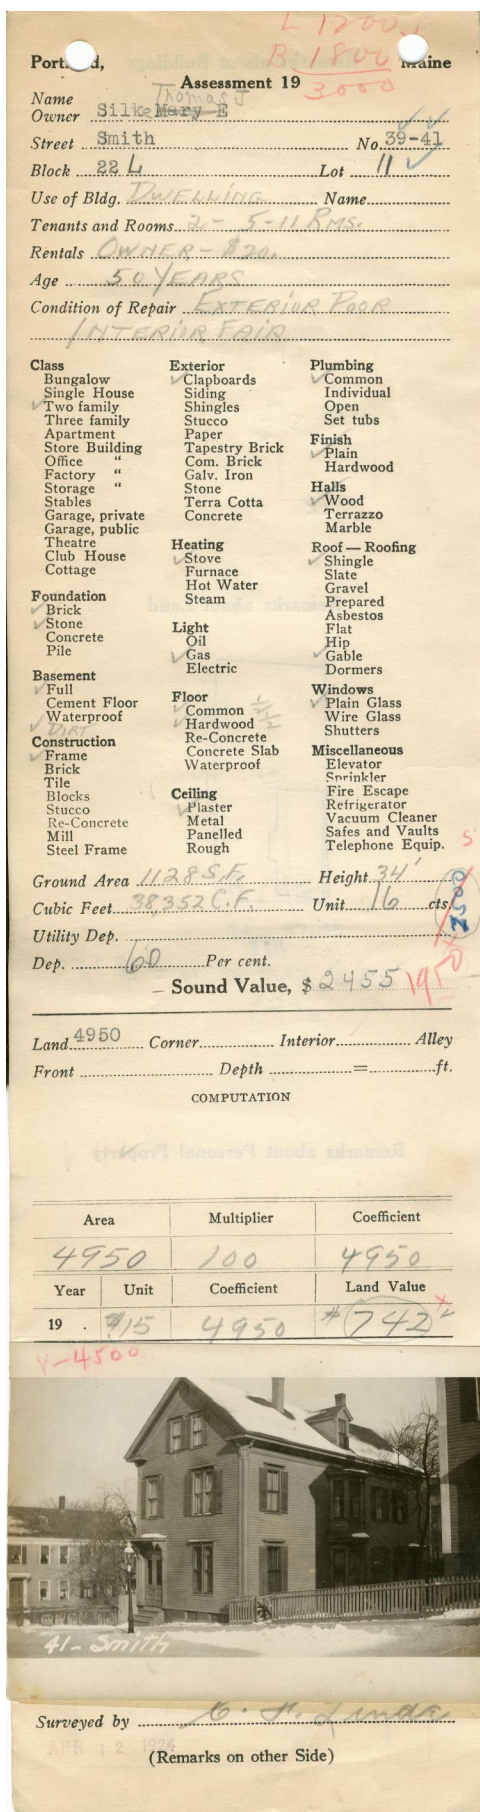 L 1200
B 1800
3000
Portland, Maine
Assessment 19
Thomas J
Name
Owner Silke Mary E
Street Smith No. 39-41
Block 22 L Lot 11
Use of Bldg. DWELLING Name
Tenants and Rooms 2 - 5-11 RMS.
Rentals OWNER - $20.
Age 50 YEARS
Condition of Repair EXTERIOR POOR
INTERIOR FAIR
Class
Bungalow
Single House
Two family
Three family
Apartment
Store Building
Office "
Factory "
Storage "
Stables
Garage, private
Garage, public
Theatre
Club House
Cottage
Foundation
Brick
Stone
Concrete
Pile
Basement
Full
Cement Floor
Waterproof
DIRT
Construction
Frame
Brick
Tile
Blocks
Stucco
Re-Concrete
Mill
Steel Frame
Exterior
Clapboards
Siding
Shingles
Stucco
Paper
Tapestry Brick
Com. Brick
Galv. Iron
Stone
Terra Cotta
Concrete
Heating
Stove
Furnace
Hot Water
Steam
Light
Oil
Gas
Electric
Floor
Common 1/2
Hardwood 1/2
Re-Concrete
Concrete Slab
Waterproof
Ceiling
Plaster
Metal
Panelled
Rough
Plumbing
Common
Individual
Open
Set tubs
Finish
Plain
Hardwood
Halls
Wood
Terrazzo
Marble
Roof — Roofing
Shingle
Slate
Gravel
Prepared
Asbestos
Flat
Hip
Gable
Dormers
Windows
Plain Glass
Wire Glass
Shutters
Miscellaneous
Elevator
Sprinkler
Fire Escape
Refrigerator
Vacuum Cleaner
Safes and Vaults
Telephone Equip.
Ground Area 1128 S.F. Height 34'
Cubic Feet 38,352 C.F. Unit 16 cts.
2500
Utility Dep.
Dep. 60 Per cent.
1950
Sound Value, $ 2455
Land 4950 Corner Interior Alley
Front Depth = ft.
COMPUTATION
Area Multiplier Coefficient
4950 100 4950
Year Unit Coefficient Land Value
19 . $.15 4950 $742
V-4500
41- Smith
Surveyed by
APR 12 1924
(Remarks on other Side)